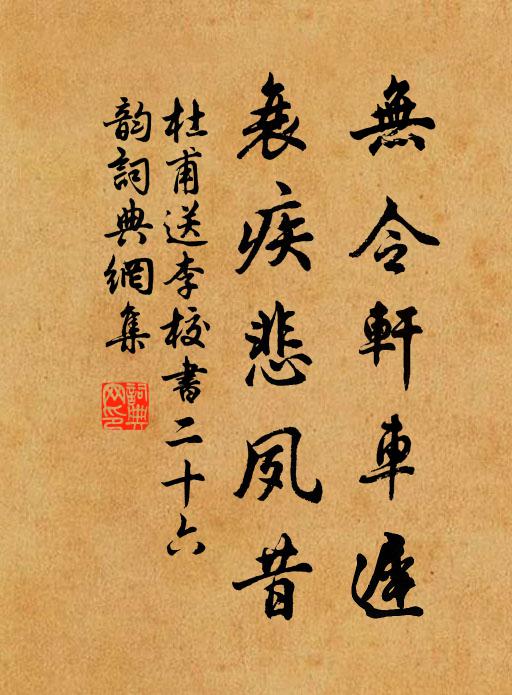 無令軒車遲
衰疾悲夙昔
杜甫送李校書二十六
韵詞典網集
詞典
网印